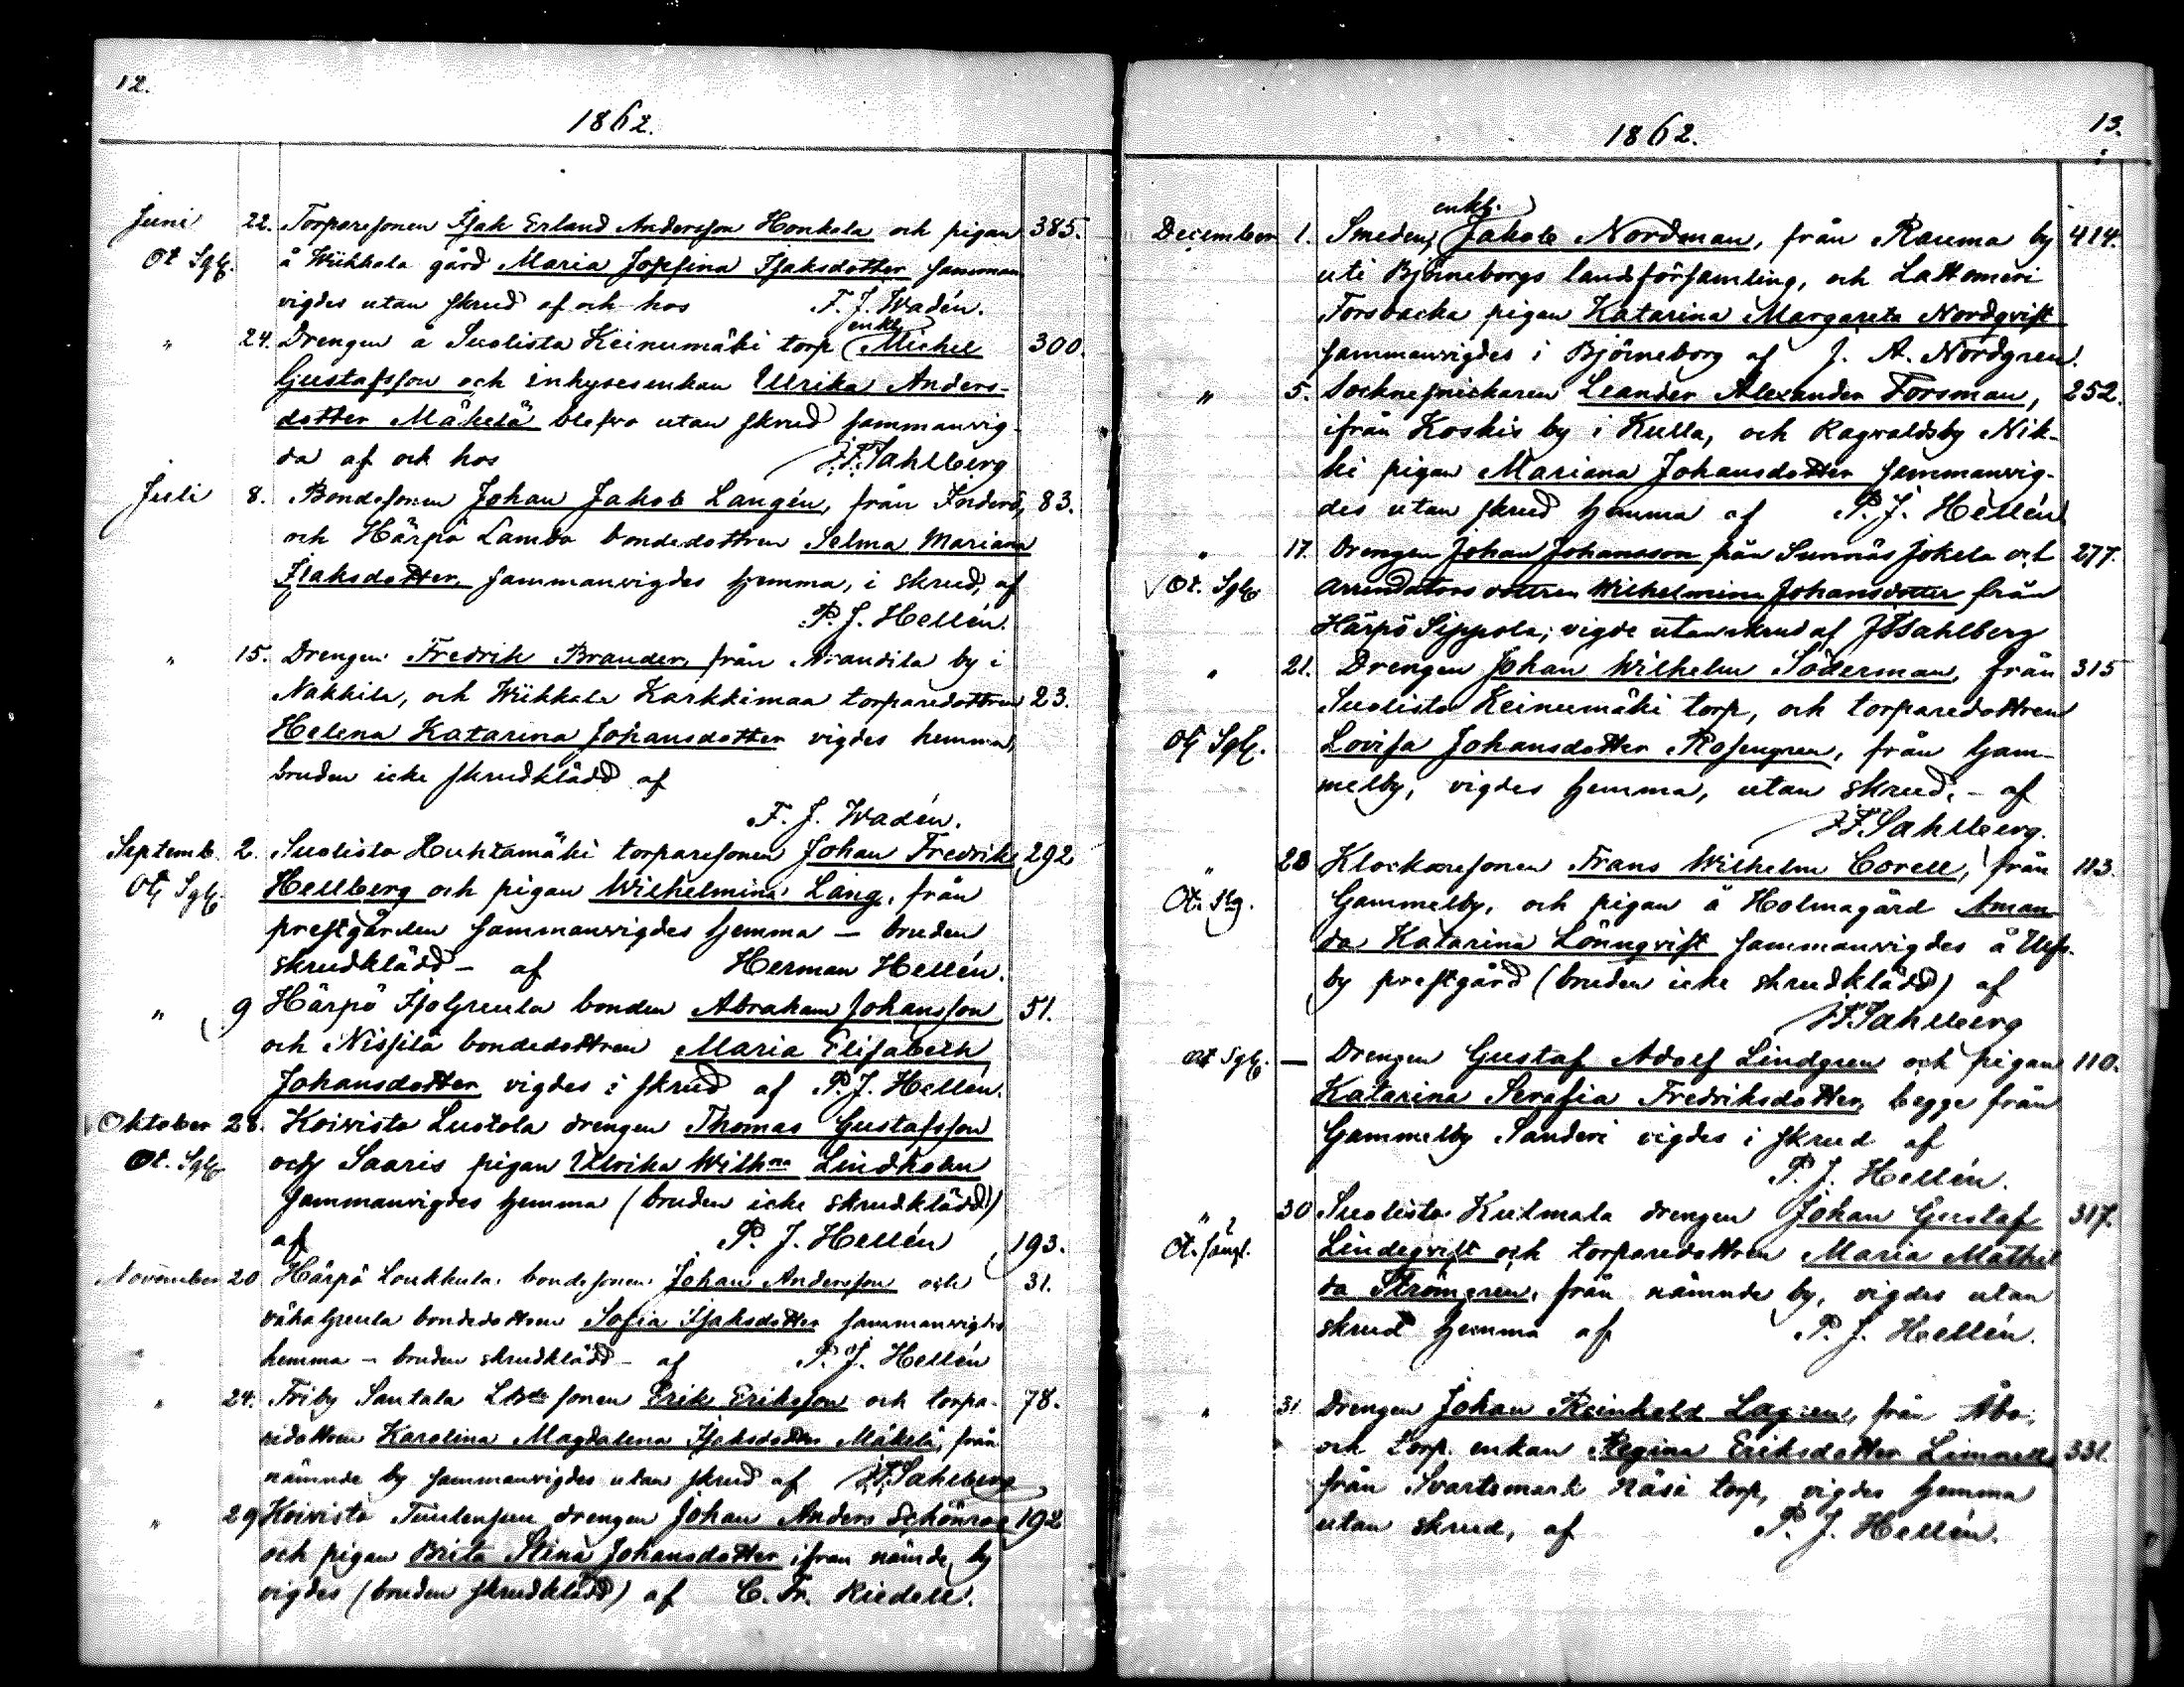 12.
1862.
Juni 22. Torparesonen Isak Erland Andersson Honkala och pigan 385.
Ot Sgl. å Wiikkala gård Maria Josefina Isaksdotter samman
vigdes utan skrud af och hos F. J. Wadén.
enkl.
" 24. Drengen å Suolista Keinumäki torp Michel 300.
Gustafsson och inhysesenkan Ulrika Anders-
dotter Mäkelä blefvo utan skrud sammanvig-
da af och hos J. F. Sahlberg
Juli 8. Bondesonen Johan Jakob Langén, från Inderö, 83.
och Härpö Lambo bondedottren Selma Mariana
Isaksdotter, sammanvigdes hemma, i skrud, af
P. J. Hellén.
" 15. Drengen Fredrik Brander, från Arandila by i
Nakkila, och Wiikkala Karkkimaa torparedottren 23.
Helena Katarina Johansdotter vigdes hemma,
bruden icke skrudklädd af
F. J. Wadén.
Septemb. 2. Suolisto Huhtamäki torparesonen Johan Fredrik 292
Otj Sgl. Hellberg och pigan Wilhelmina Lang, från
prestgården sammanvigdes hemma – bruden
skrudklädd – af Herman Hellén.
" 9 Härpö Isogreula bonden Abraham Johansson 51.
och Nissilä bondedottren Maria Elisabeth
Johansdotter vigdes i skrud af P. J. Hellén.
Oktober 28. Koivisto Lustola drengen Thomas Gustafsson
Ot. Sgl. och Saaris pigan Ulrika Wilhna Lindholm
sammanvigdes hemma (bruden icke skrudklädd)
af P. J. Hellén 193.
November 20 Härpö Loukkula bondesonen Johan Andersson och 31.
vähaGreula bondedottren Sofia Isaksdotter sammanvigdes
hemma – bruden skrudklädd – af P. J. Hellén
" 24. Friby Santala Lbde sonen Erik Eriksson och torpa- 78.
redottren Karolina Magdalena Isaksdotter Mäkelä, från
nämnde by sammanvigdes utan skrud af J. F. Sahlberg
" 29 Koivisto Tuulensuu drengen Johan Anders Schönroo 192
och pigan Brita Stina Johansdotter ifrån nämde by
vigdes (bruden skrudklädd) af C. Fr. Riedell.
1862. 13.
enkl.
December 1. Smeden, Jakob Nordman, från Rauma by 414.
uti Björneborgs landsförsamling, och Lattomeri
Forsbacka pigan Katarina Margareta Nordqvist
sammanvigdes i Björneborg af J. A. Nordgren.
" 5. Sockensnickaren Leander Alexander Forsman, 252.
ifrån Koskis by i Kulla, och Ragvaldsby Nik-
ki pigan Mariana Johansdotter sammanvig-
des utan skrud hemma af P. J. Hellén
" 17. Drengen Johan Johansson från Sunnäs Jokela och 277.
Ot. Sgl. Arrendators dottren Wilhelmina Johansdotter från
Härpö Sippola; vigde utan skrud af J F Sahlberg
" 21. Drengen Johan Wilhelm Söderman, från 315
Suolisto Keinumäki torp, och torparedottren
Otj Sgl. Lovisa Johansdotter Rosengren, från Gam-
melby, vigdes hemma, utan skrud, – af
J. F. Sahlberg.
" 28 Klockaresonen Frans Wilhelm Corell, från 113.
Ot. Slg. Gammelby, och pigan å Holmagård Aman-
da Katarina Lönnqvist sammanvigdes å Ulfs-
by prestgård (bruden icke skrudklädd) af
J. F. Sahlberg
Ot Sgl. — Drengen Gustaf Adolf Lindgren och pigan 110.
Katarina Serafia Fredriksdotter, begge från
Gammelby Sanderi vigdes i skrud af
P. J. Hellén.
" 30 Suolisto Kulmala drengen Johan Gustaf 317.
Ot. sängl. Lindeqvist och torparedottren Maria Mathil
da Strömgren, från nämnde by, vigdes utan
skrud hemma af P. J. Hellén.
" 31 Drengen Johan Reinhold Lagren, från Åbo,
och torp. enkan Regina Eriksdotter Limnell 331.
från Svartsmark Näsi torp, vigdes hemma
utan skrud, af P. J. Hellén.